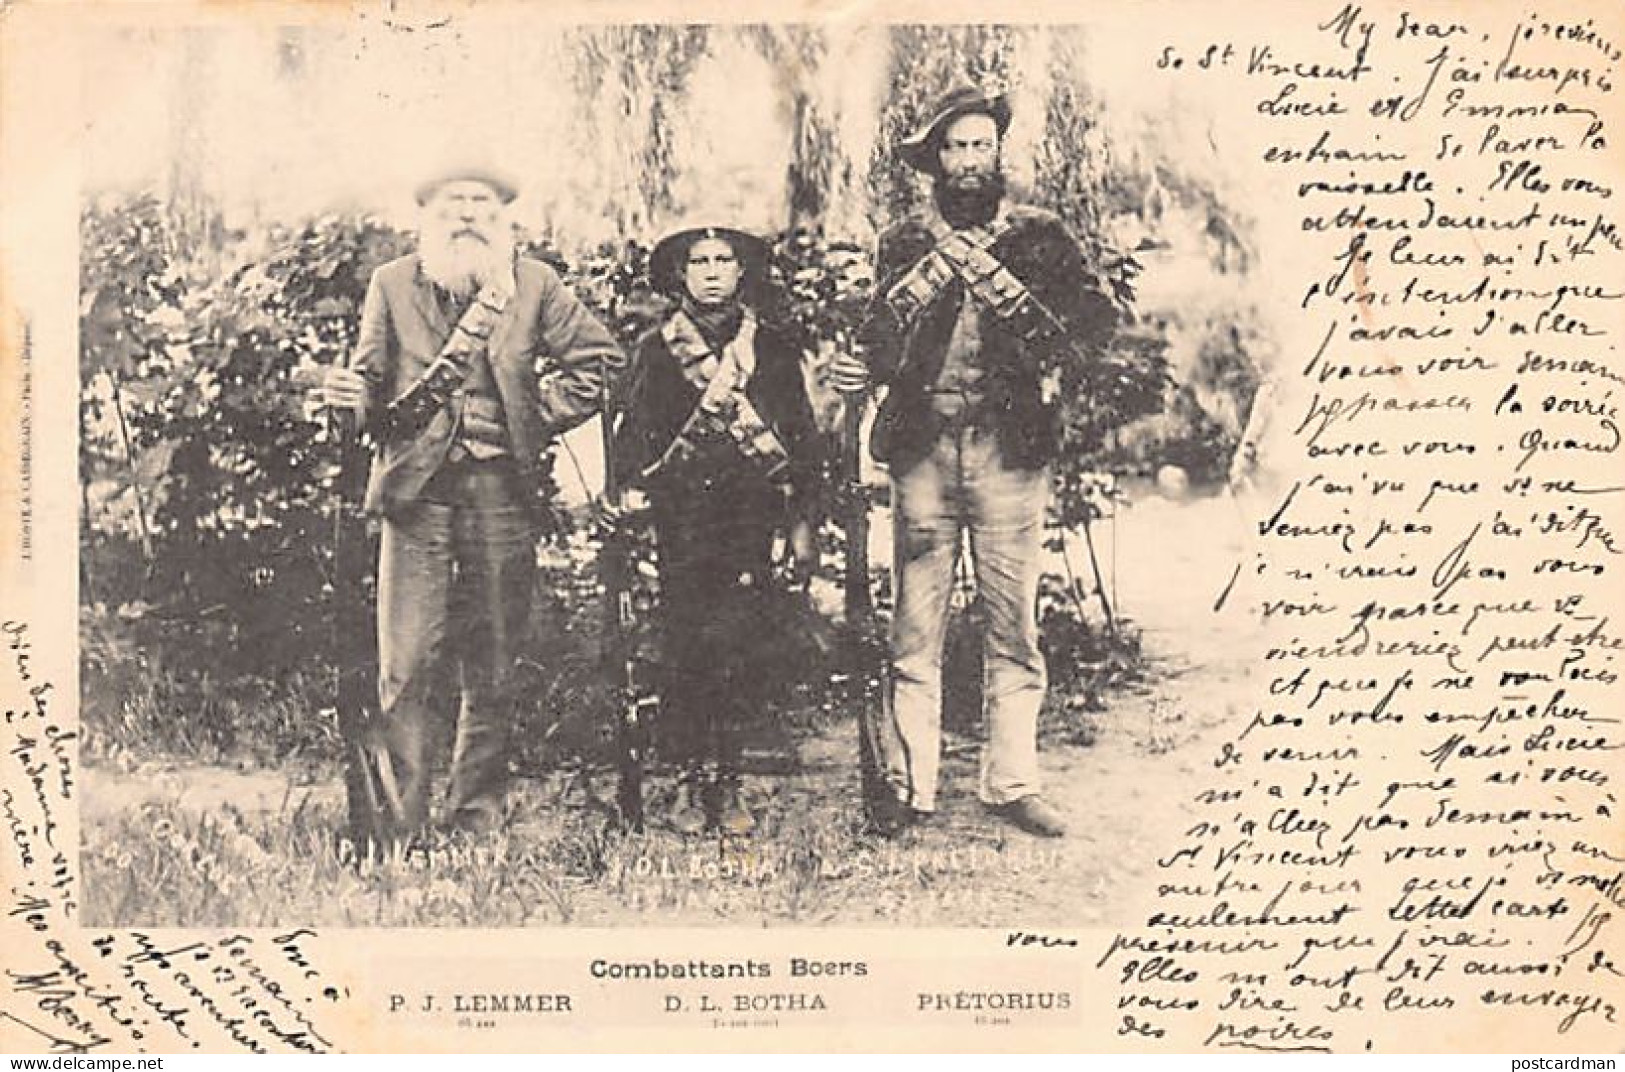 My dear, je reviens
de St Vincent. J'ai surpris
Lucie et Emma
entrain de laver la
vaisselle. Elles vous
attendaient un peu
Je leur ai dit
l'intention que
j'avais d'aller
vous voir demain
passer la soirée
avec vous. Quand
j'ai vu que vs ne
veniez pas j'ai dit que
je n'irais pas vous
voir parceque vs
viendreriez peut-etre
et que je ne voulais
pas vous empêcher
de venir. Mais Lucie
m'a dit que si vous
n'alliez pas demain à
St Vincent vous iriez un
autre jour que je
seulement cette carte pr
vous prévenir que j'irai.
Elles m'ont dit aussi de
vous dire de leur envoyer
des poires.
Donc à
demain
je vs raconterai
mon aventure
de route.
Bien des choses
à Madame votre
mère. Mes amitiés.
P.J. LEMMER
D.L. BOTHA
PRETORIUS
Combattants Boers
P. J. LEMMER
D. L. BOTHA
PRÉTORIUS
65 ans
postcardman